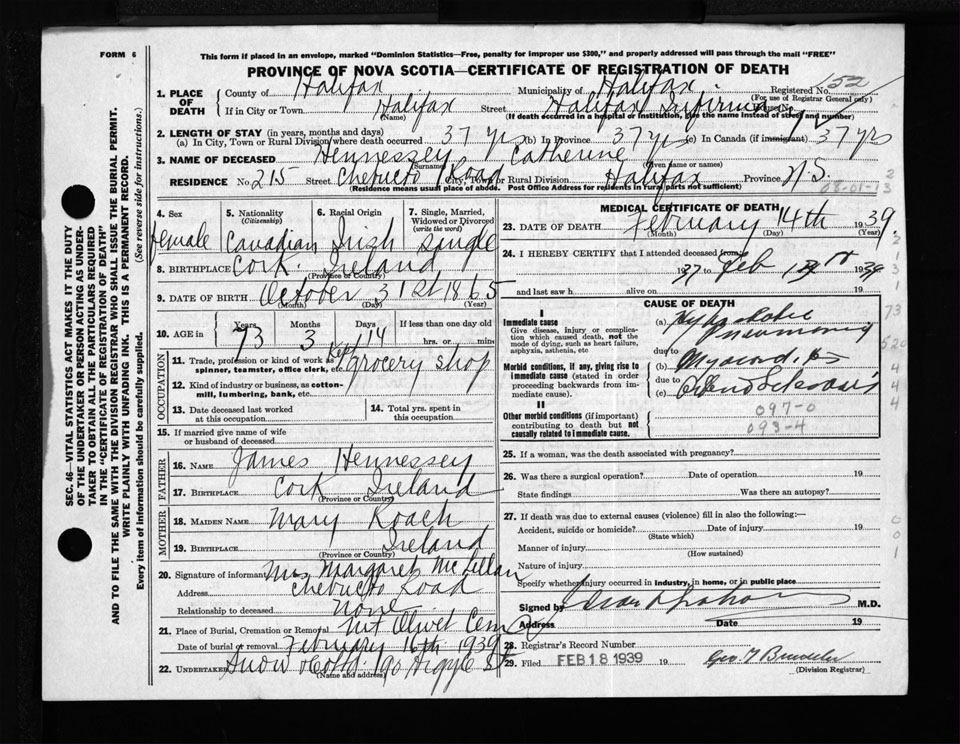 FORM 6
This form if placed in an envelope, marked "Dominion Statistics—Free, penalty for improper use $300," and properly addressed will pass through the mail "FREE"
PROVINCE OF NOVA SCOTIA—CERTIFICATE OF REGISTRATION OF DEATH
SEC. 46—VITAL STATISTICS ACT MAKES IT THE DUTY
OF THE UNDERTAKER OR PERSON ACTING AS UNDER-
TAKER TO OBTAIN ALL THE PARTICULARS REQUIRED
IN THE "CERTIFICATE OF REGISTRATION OF DEATH" AND
TO FILE THE SAME WITH THE DIVISION REGISTRAR WHO SHALL ISSUE THE BURIAL PERMIT.
WRITE PLAINLY WITH UNFADING INK. THIS IS A PERMANENT RECORD.
Every item of information should be carefully supplied. (See reverse side for instructions.)
1. PLACE OF DEATH
County of Halifax Municipality of Halifax Registered No. 152
(For use of Registrar General only)
If in City or Town Halifax Street Halifax Infirmary
(Name) (If death occurred in a hospital or institution, give the name instead of street and number)
2. LENGTH OF STAY (in years, months and days)
(a) In City, Town or Rural Division where death occurred 37 yrs (b) In Province 37 yrs (c) In Canada (if immigrant) 37 yrs
3. NAME OF DECEASED Hennessey Catherine
(Surname) (Given name or names)
RESIDENCE No. 215 Street Chebucto Road City, Town or Rural Division Halifax Province N.S.
(Residence means usual place of abode. Post Office Address for residents in rural parts not sufficient)
08-01-13
4. Sex 5. Nationality (Citizenship) 6. Racial Origin 7. Single, Married, Widowed or Divorced (write the word)
Female Canadian Irish Single
8. BIRTHPLACE Cork Ireland
(Province or Country)
9. DATE OF BIRTH October 31st 1865
(Month) (Day) (Year)
10. AGE in Years Months Days If less than one day old
73 3 14 hrs. or min.
OCCUPATION
11. Trade, profession or kind of work as spinner, teamster, office clerk, etc. Kept grocery shop
12. Kind of industry or business, as cotton-mill, lumbering, bank, etc.
13. Date deceased last worked at this occupation
14. Total yrs. spent in this occupation
15. If married give name of wife or husband of deceased
FATHER
16. NAME James Hennessey
17. BIRTHPLACE Cork Ireland
(Province or Country)
MOTHER
18. MAIDEN NAME Mary Roach
19. BIRTHPLACE Ireland
(Province or Country)
20. Signature of informant Mrs Margaret McLellan
Address Chebucto Road
Relationship to deceased None
21. Place of Burial, Cremation or Removal Mt Olivet Cem
Date of burial or removal February 16th 1939
22. UNDERTAKER Snow & Co Ltd 190 Argyle St
(Name and address)
MEDICAL CERTIFICATE OF DEATH
23. DATE OF DEATH February 14th 1939
(Month) (Day) (Year)
24. I HEREBY CERTIFY that I attended deceased from
1937 to Feb 14th 1939
and last saw h alive on 19
CAUSE OF DEATH
I
Immediate cause
Give disease, injury or complication which caused death, not the mode of dying, such as heart failure, asphyxia, asthenia, etc
(a) Hypostatic Pneumonia
due to
Morbid conditions, if any, giving rise to immediate cause (stated in order proceeding backwards from immediate cause).
(b)
due to
(c)
II
Other morbid conditions (if important) contributing to death but not causally related to immediate cause.
097-0
093-4
25. If a woman, was the death associated with pregnancy?
26. Was there a surgical operation? Date of operation 19
State findings Was there an autopsy?
27. If death was due to external causes (violence) fill in also the following:—
Accident, suicide or homicide? Date of injury 19
(State which)
Manner of injury
(How sustained)
Nature of injury
Specify whether injury occurred in industry, in home, or in public place
Signed by M.D.
Address Date 19
28. Registrar's Record Number
29. Filed FEB 18 1939 19
(Division Registrar)